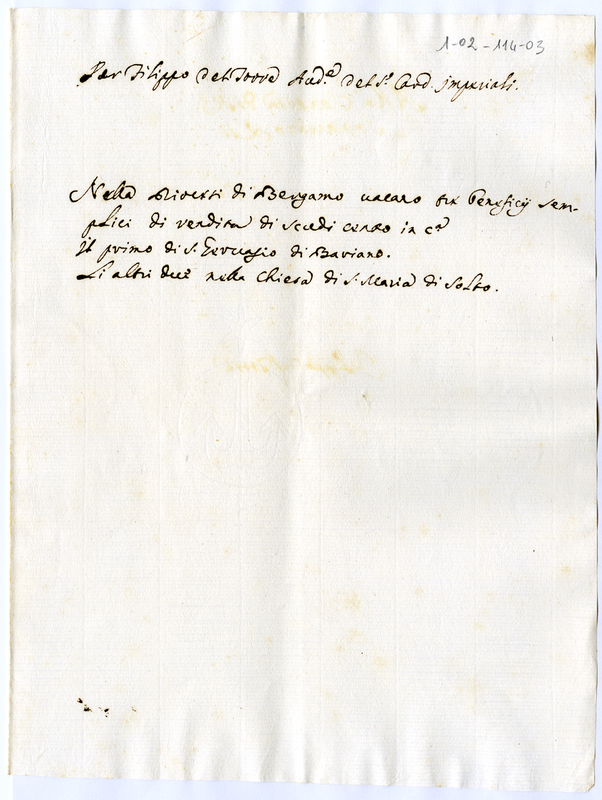 1-02-114-03
Per Filippo del Torre Aud.e del S.r Card. Imperiali.
Nella Diocesi di Bergamo vacano tre Beneficij sem-
plici di rendita di scudi cento in c.a
Il primo di S. Gervasio di Bariano.
Li altri due nella Chiesa di S. Maria di Solto.